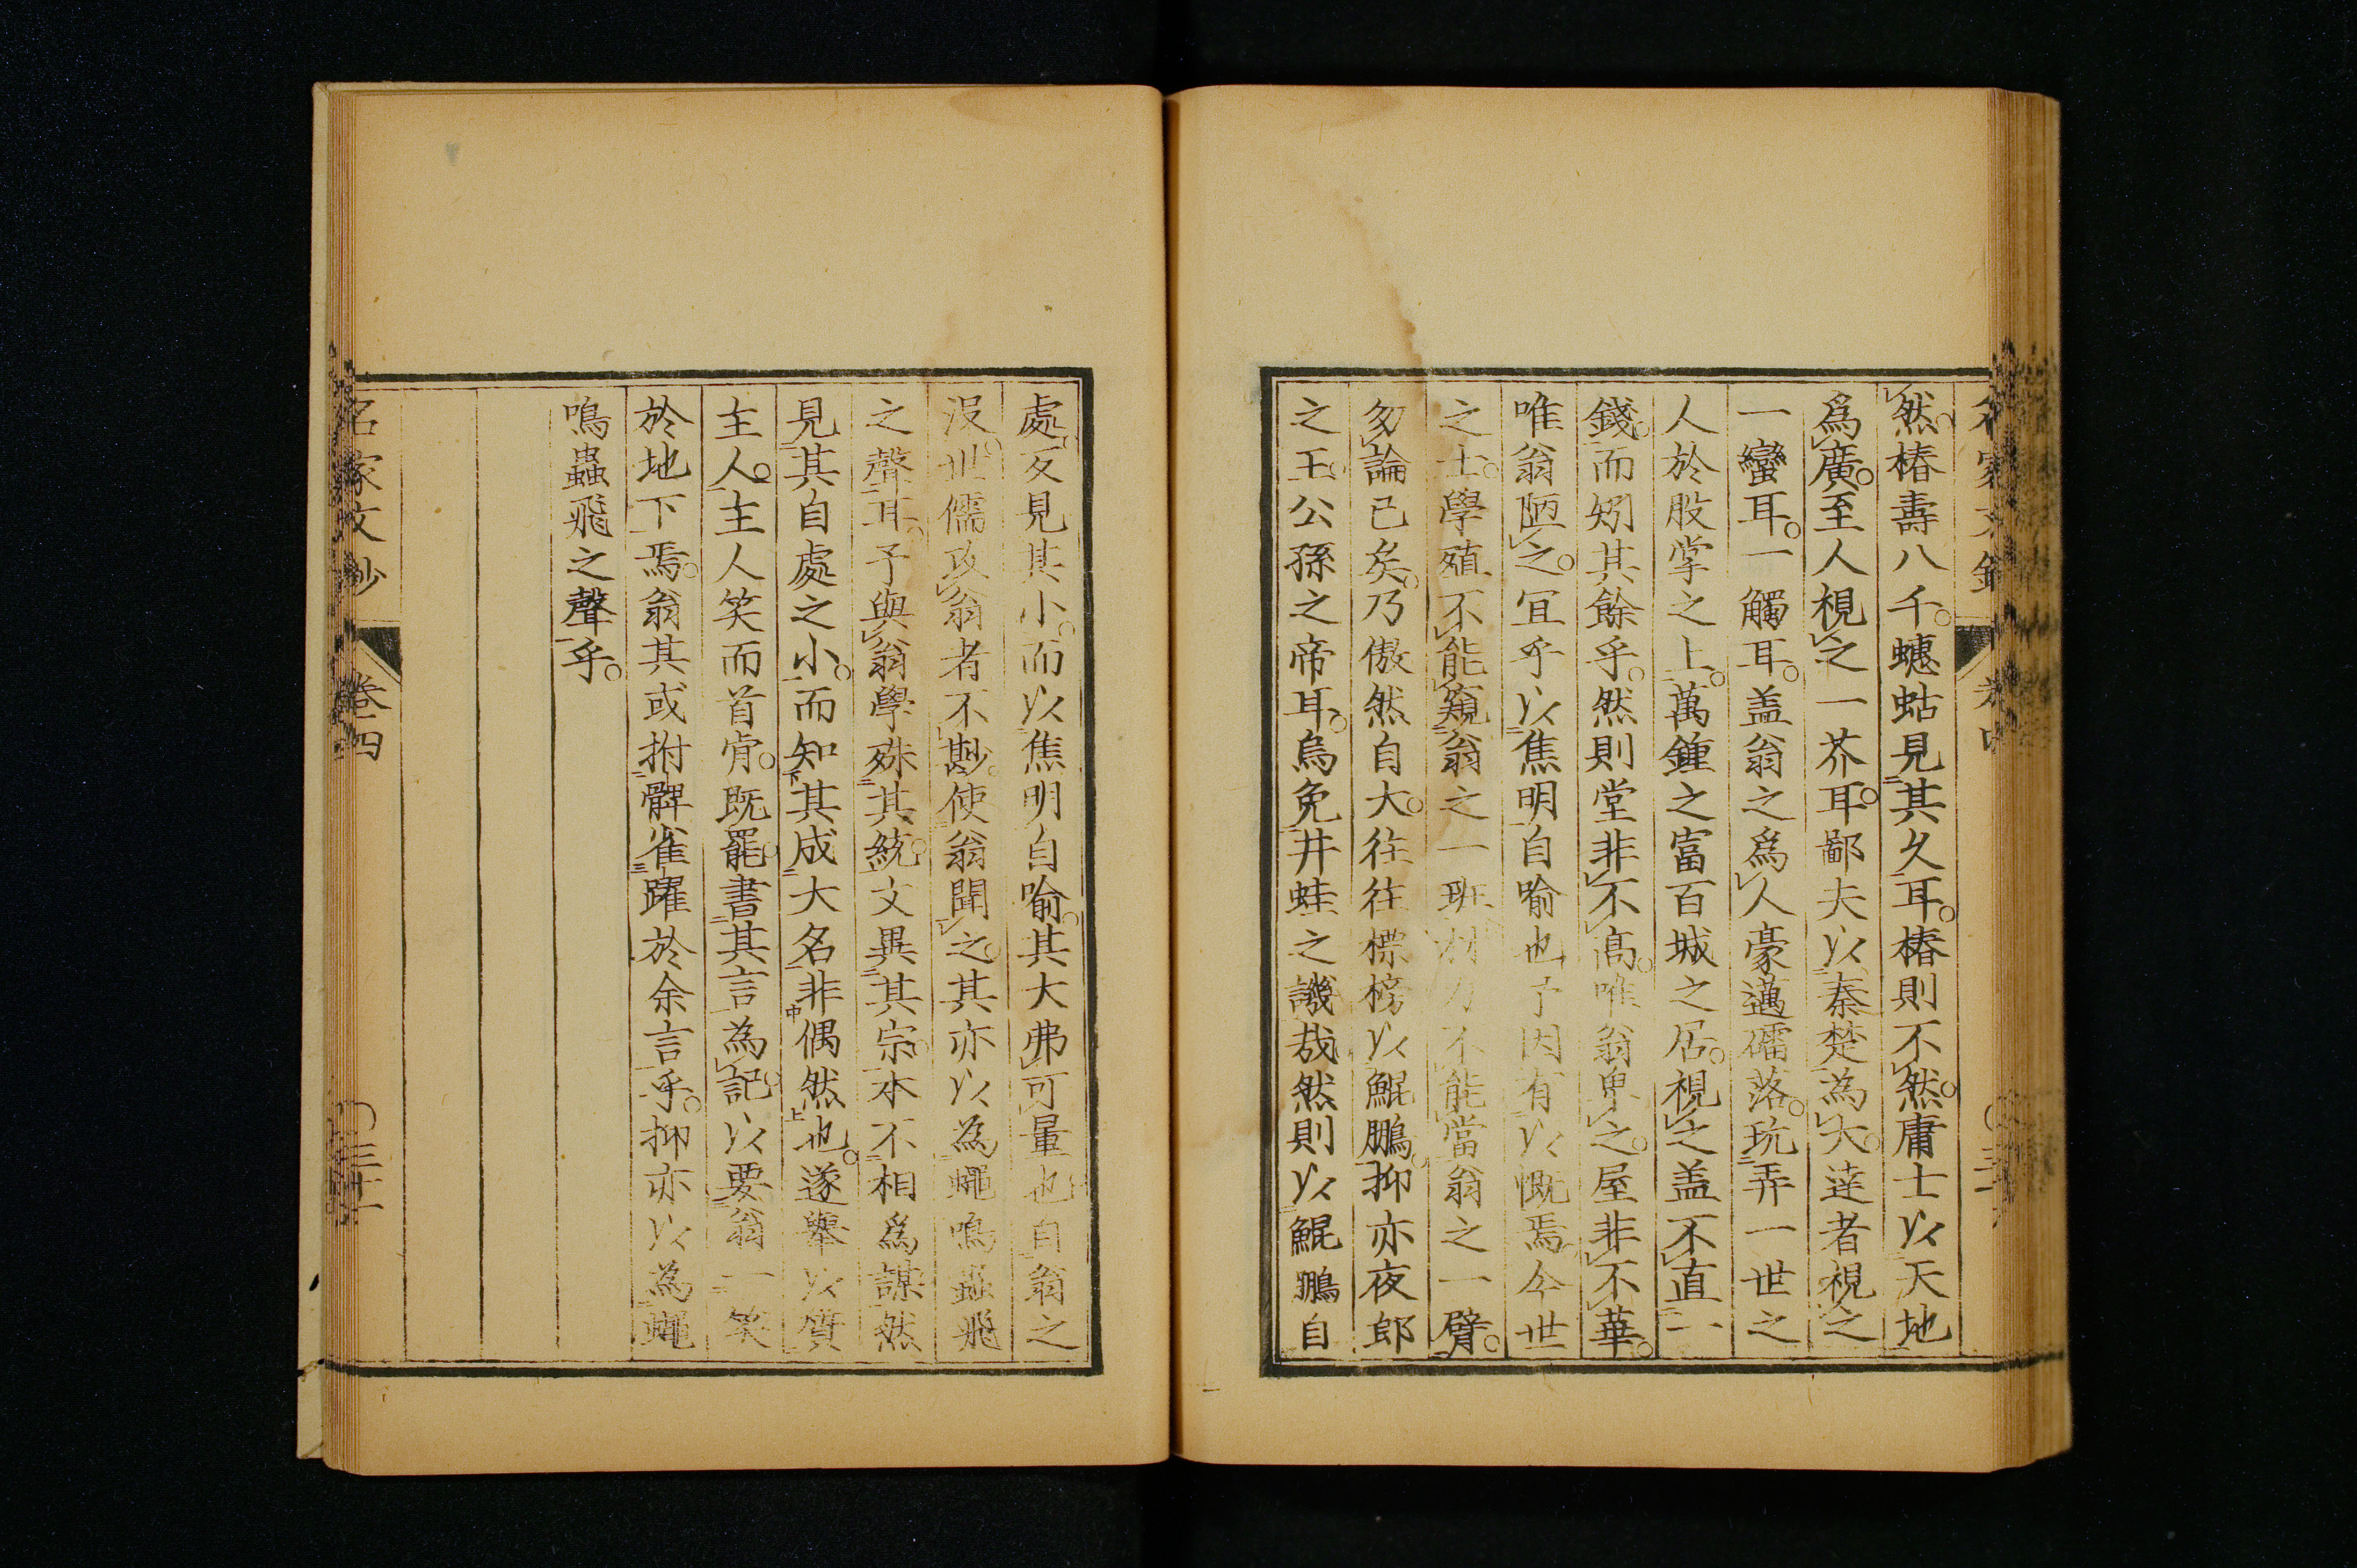 然。椿壽八千。蟪蛄見其久耳。椿則不然。庸士以天地
爲廣。至人視之一芥耳。鄙夫以秦楚為大。達者視之
一蠻耳。一觸耳。盖翁之爲人豪邁礌落。玩弄一世之
人於股掌之上。萬鍾之富百城之居。視之盖不直一
錢。而矧其餘乎。然則堂非不高。唯翁卑之。屋非不華。
唯翁陋之。宜乎以焦明自喻也予因有以慨焉。今世
之士。學殖不能窺翁之一班才力不能當翁之一臂。
勿論已矣。乃傲然自大。往往標榜以鯤鵬。抑亦夜郎
之王。公孫之帝耳。烏免井蛙之譏哉然則以鯤鵬自
處。反見其小。而以焦明自喻。其大弗可量也自翁之
沒。世儒攻翁者不尠。使翁聞之。其亦以為蠅鳴蟲飛
之聲耳。予與翁學殊其統。文異其宗。本不相爲謀然
見其自處之小。而知其成大名非偶然也。遂舉以質
主人。主人笑而首肯。既罷。書其言為記。以要翁一笑
於地下焉。翁其或拊髀雀躍於余言乎。抑亦以為蠅
鳴蟲飛之聲乎。
名家文鈔 卷四